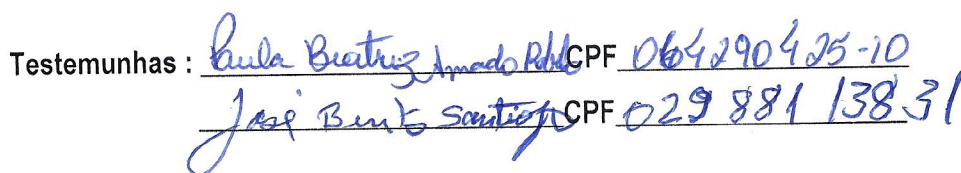 Testemunhas : Paula Beatriz Amado CPF 064290425-10
José Bento Santiago CPF 029 881 138 31